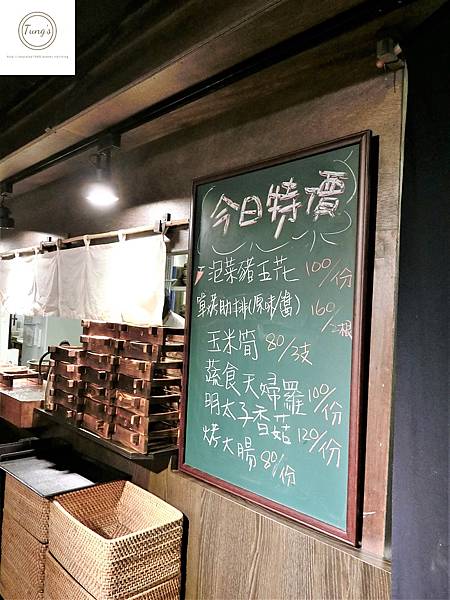 Tung's
今日特價
泡菜豬五花 100/份
單浸肋排(原味/醬) 160/2根
玉米筒 80/3支
蔬食天婦羅 100/份
明太子香菇 120/份
烤大腸 80/份